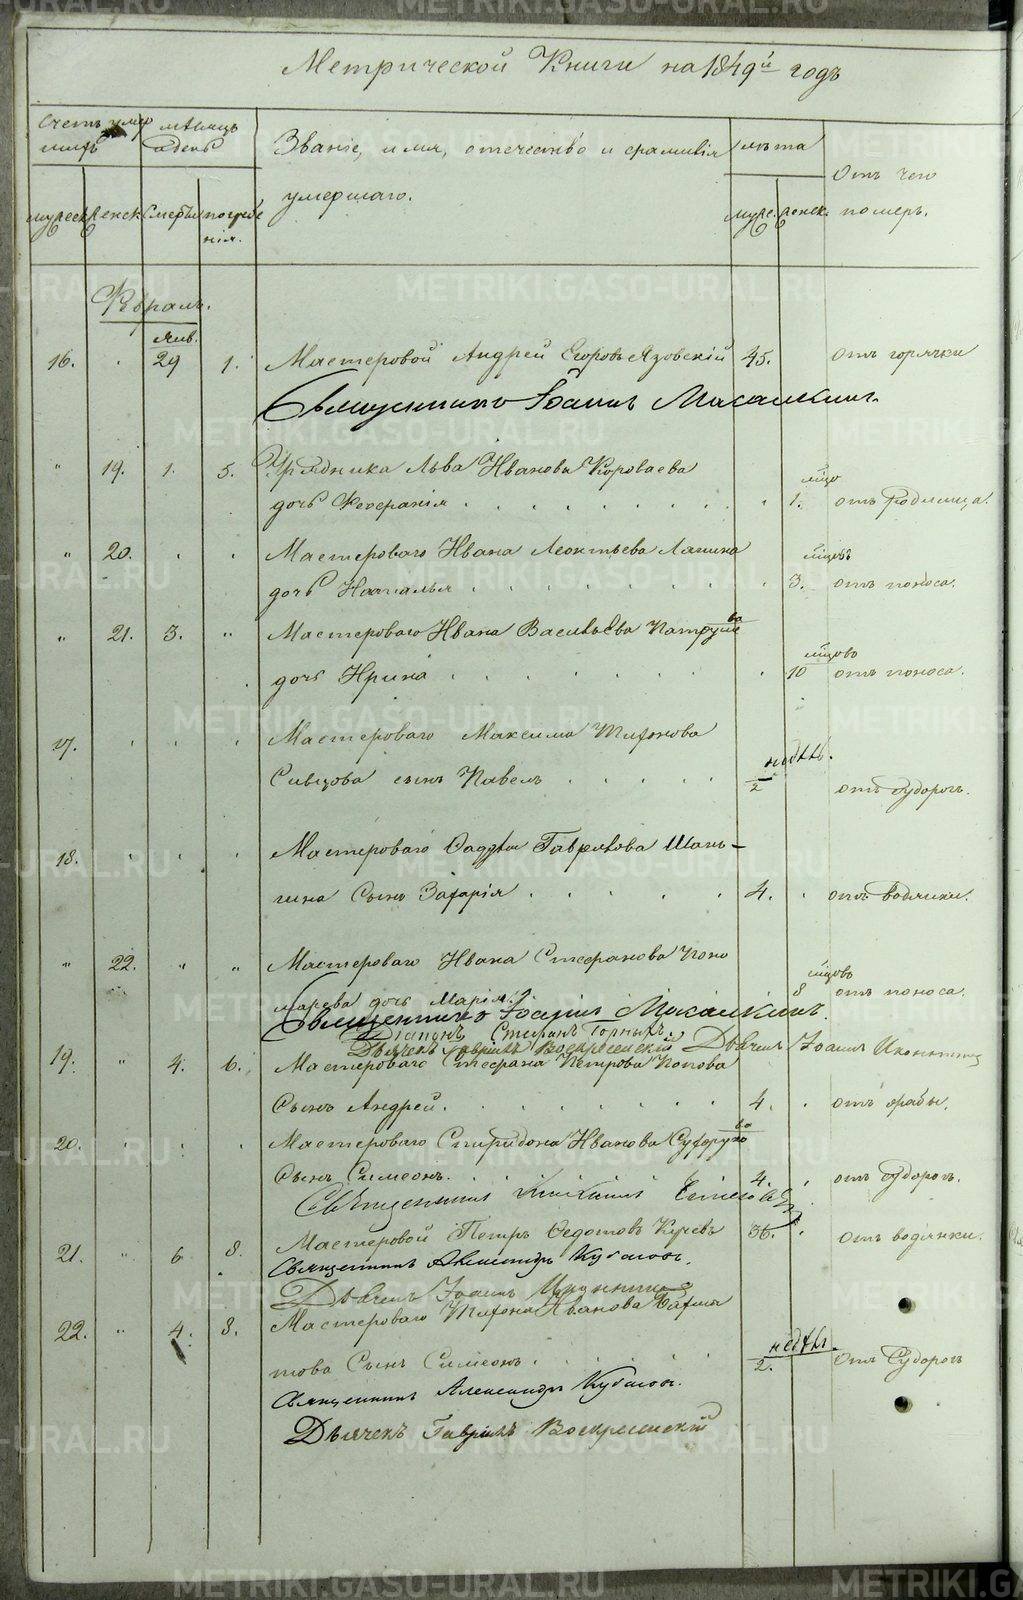 Метрической Книги на 1849й годъ
Счетъ умер шихъ
мѣсяцъ и день
Званіе, имя, отечество и фамилія умершаго.
лѣта
Отъ чего померъ.
мужеск.
женск.
Смерти
погребе нія.
муже.
женск.
Февраль.
16. . Янв. 29 1. Мастеровой Андрей Егоровъ Язовскій 45. отъ горячки
Священникъ Іоаннъ
" 19. 1. 5. Урядника Льва Иванова Короваева
дочь Ѳеофанія . . . 1. отъ родимца.
" 20. . . Мастероваго Ивана Леонтьева Лапина
дочь Наталья . . . 3. отъ поноса.
" 21. 3. " Мастероваго Ивана Васильева Патруше ва
дочь Ирина . . . мѣсяцовъ 10 отъ поноса.
17. . . . Мастероваго Максима Тихонова
Сивцова сынъ Павелъ . . . недѣль. 2 отъ Судорогъ.
18. . . . Мастероваго Ѳаддѣя Гаврилова Шань-
гина Сынъ Захарія . . . 4. . отъ водянки.
" 22. " " Мастероваго Ивана Стефанова Поно
марева дочь Марія. 8 отъ поноса.
Священникъ Іоаннъ
Діаконъ Стефанъ Горныхъ.
Дьячекъ Гавріилъ Воскресенскій Дьячекъ Іоаннъ
19. " 4. 6. Мастероваго Стефана Петрова Попова
Сынъ Андрей. . . . 4. . отъ
20. . . . Мастероваго Спиридона Иванова
Сынъ Симеонъ. . . . 4. . отъ Судорогъ.
Священникъ
21. " 6 8. Мастеровой Петръ Ѳедотовъ 36. . отъ водянки.
Священникъ Александръ
Дьячекъ Іоаннъ
22. " 4. 8. Мастероваго Тихона Иванова
това Сынъ Симеонъ . . . недѣль 2. отъ Судорогъ
Священникъ Александръ
Дьячекъ Гавріилъ Воскресенскій
METRIKI.GASO-URAL.RU